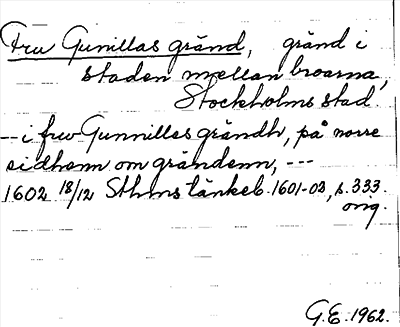 Fru Gunillas gränd, gränd i
staden mellan broarna,
Stockholms stad.
-- i fru Gunnilles grändh, på norre
sidhann om grändenn, ---
1602 18/12 Sthms tänkeb. 1601-03, s. 333.
orig.
G.E. 1962.